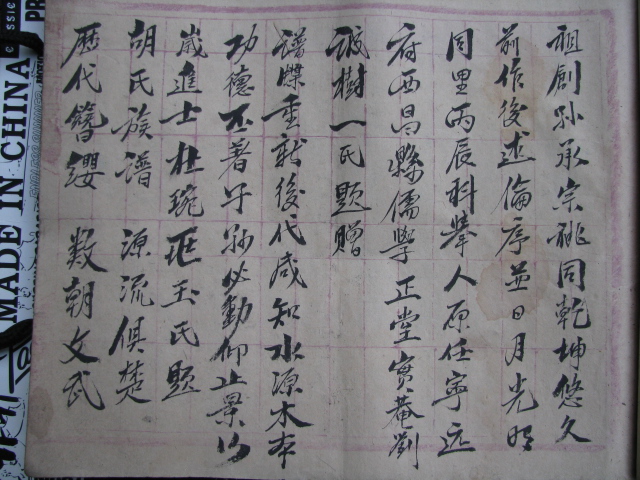 祖創孫承宗祧同乾坤悠久
前作後述倫序並日月光明
同里丙辰科舉人原任寧远
府西昌縣儒學正堂實菴劉
澍樹一氏题贈
譜牒重新後代咸知水源木本
功德丕著子孙必勤仰止景行
歲進士杜琬莊玉氏题
胡氏族譜 源流俱楚
歷代簪纓 数朝文武
MADE IN CHINA